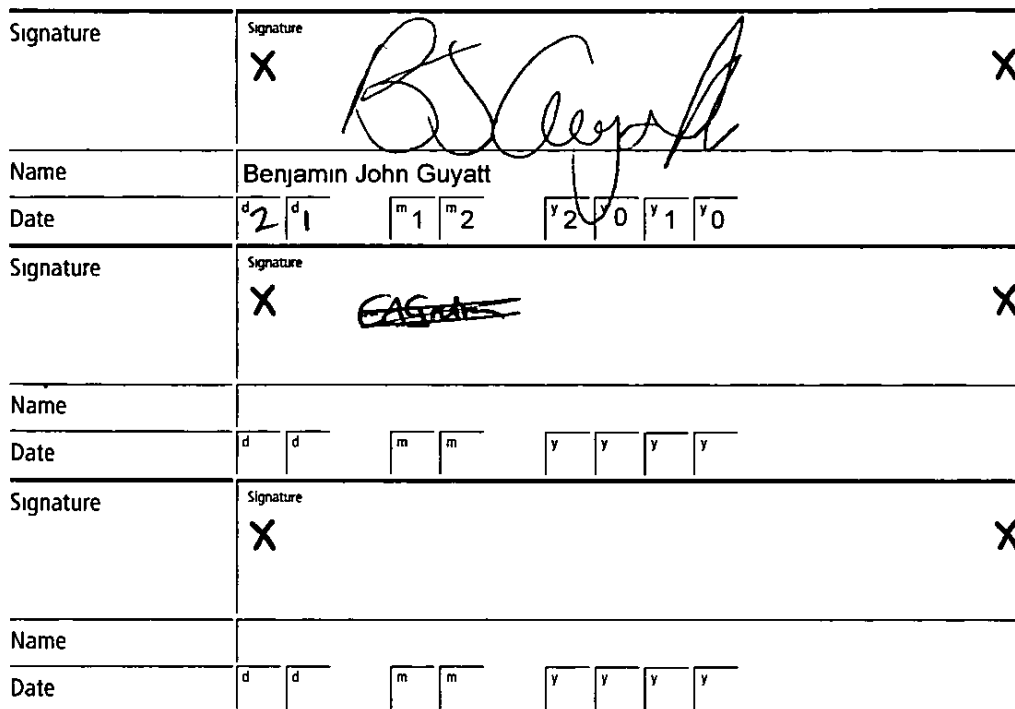 Signature Signature
X B J Guyatt X
Name Benjamin John Guyatt
Date d2 d1 m1 m2 y2 y0 y1 y0
Signature Signature
X X
Name
Date d d m m y y y y
Signature Signature
X X
Name
Date d d m m y y y y